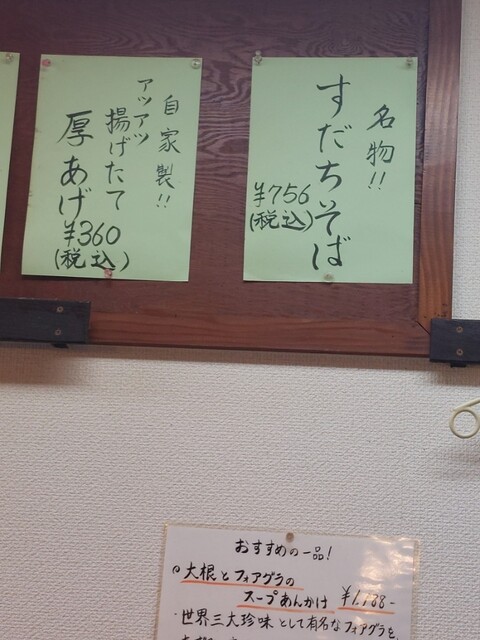 名物!!
すだちそば
¥756
(税込)
自家製!!
アツアツ
揚げたて
厚あげ
¥360
(税込)
おすすめの一品!
大根とフォアグラの
スープあんかけ ¥1,188-
・世界三大珍味として有名なフォアグラを